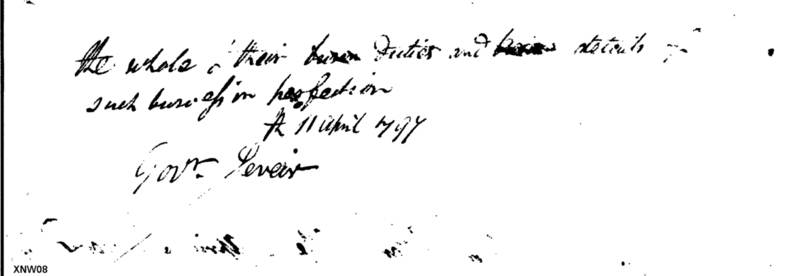 the whole of their duties and details of
such business in perfection
11 April 1797
Govr. Sevier
XNW08